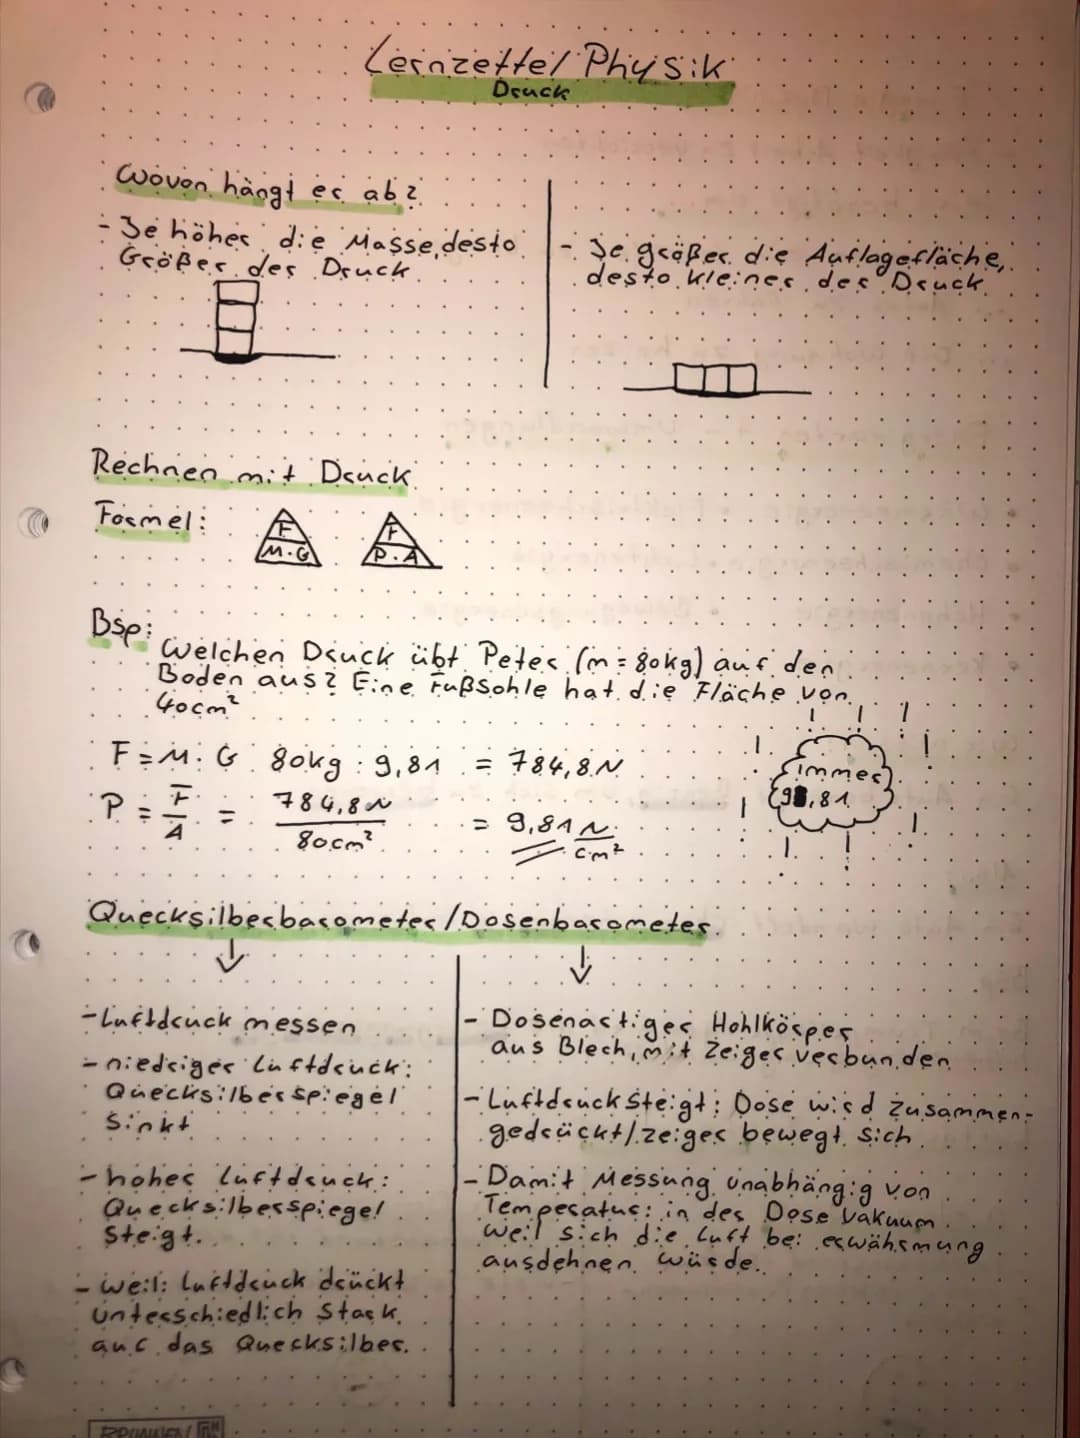 Lernzettel Physik
Druck
Wovon hängt er ab?
- Je höher die Masse, desto
Größer der Druck
- Je größer die Auflagefläche,
desto kleiner der Druck
Rechnen mit Druck
Formel:
F
M·G
F
P·A
Bsp:
Welchen Druck übt Peter (m = 80kg) auf den
Boden aus? Eine Fußsohle hat die Fläche von
40cm²
F = M · G 80kg · 9,81 = 784,8N
P = F/A = 784,8N/80cm² = 9,81 N/cm²
immer
9,81
Quecksilberbarometer/Dosenbarometer
- Luftdruck messen
- niedriger Luftdruck:
Quecksilberspiegel
sinkt
- hoher Luftdruck:
Quecksilberspiegel
steigt.
- weil: Luftdruck drückt
unterschiedlich stark
auf das Quecksilber.
- Dosenartiger Hohlkörper
aus Blech, mit Zeiger verbunden
- Luftdruck steigt: Dose wird zusammen-
gedrückt/zeiger bewegt sich
- Damit Messung unabhängig von
Temperatur: in der Dose Vakuum
weil sich die Luft bei erwährmung
ausdehnen würde.